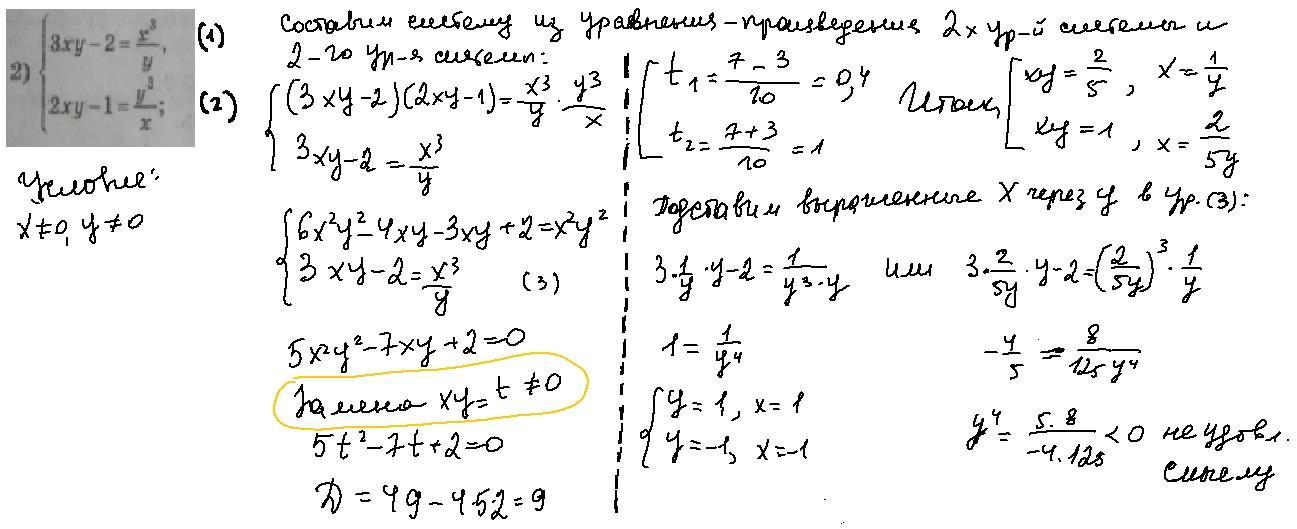 2) { 3xy − 2 = x³/y, (1)
2xy − 1 = y³/x; (2)
Условие:
x ≠ 0, y ≠ 0
Составим систему из уравнения-произведения 2х ур-й системы и
2-го ур-я системы:
{ (3xy−2)(2xy−1) = x³/y · y³/x
3xy−2 = x³/y
{ 6x²y²−4xy−3xy+2=x²y²
3xy−2 = x³/y (3)
5x²y²−7xy+2=0
Замена xy = t ≠ 0
5t²−7t+2=0
D = 49−4·5·2=9
[ t₁ = (7−3)/10 = 0,4
t₂ = (7+3)/10 = 1
Итак, [ xy = 2/5, x = 1/y
xy = 1, x = 2/5y
Подставим выраженные x через y в ур. (3):
3·1/y·y−2 = 1/y³·y или 3·2/5y·y−2=(2/5y)³·1/y
1 = 1/y⁴
−4/5 = 8/125y⁴
{ y = 1, x = 1
y = −1, x = −1
y⁴ = 5·8/−4·125 < 0 не удовл.
смыслу